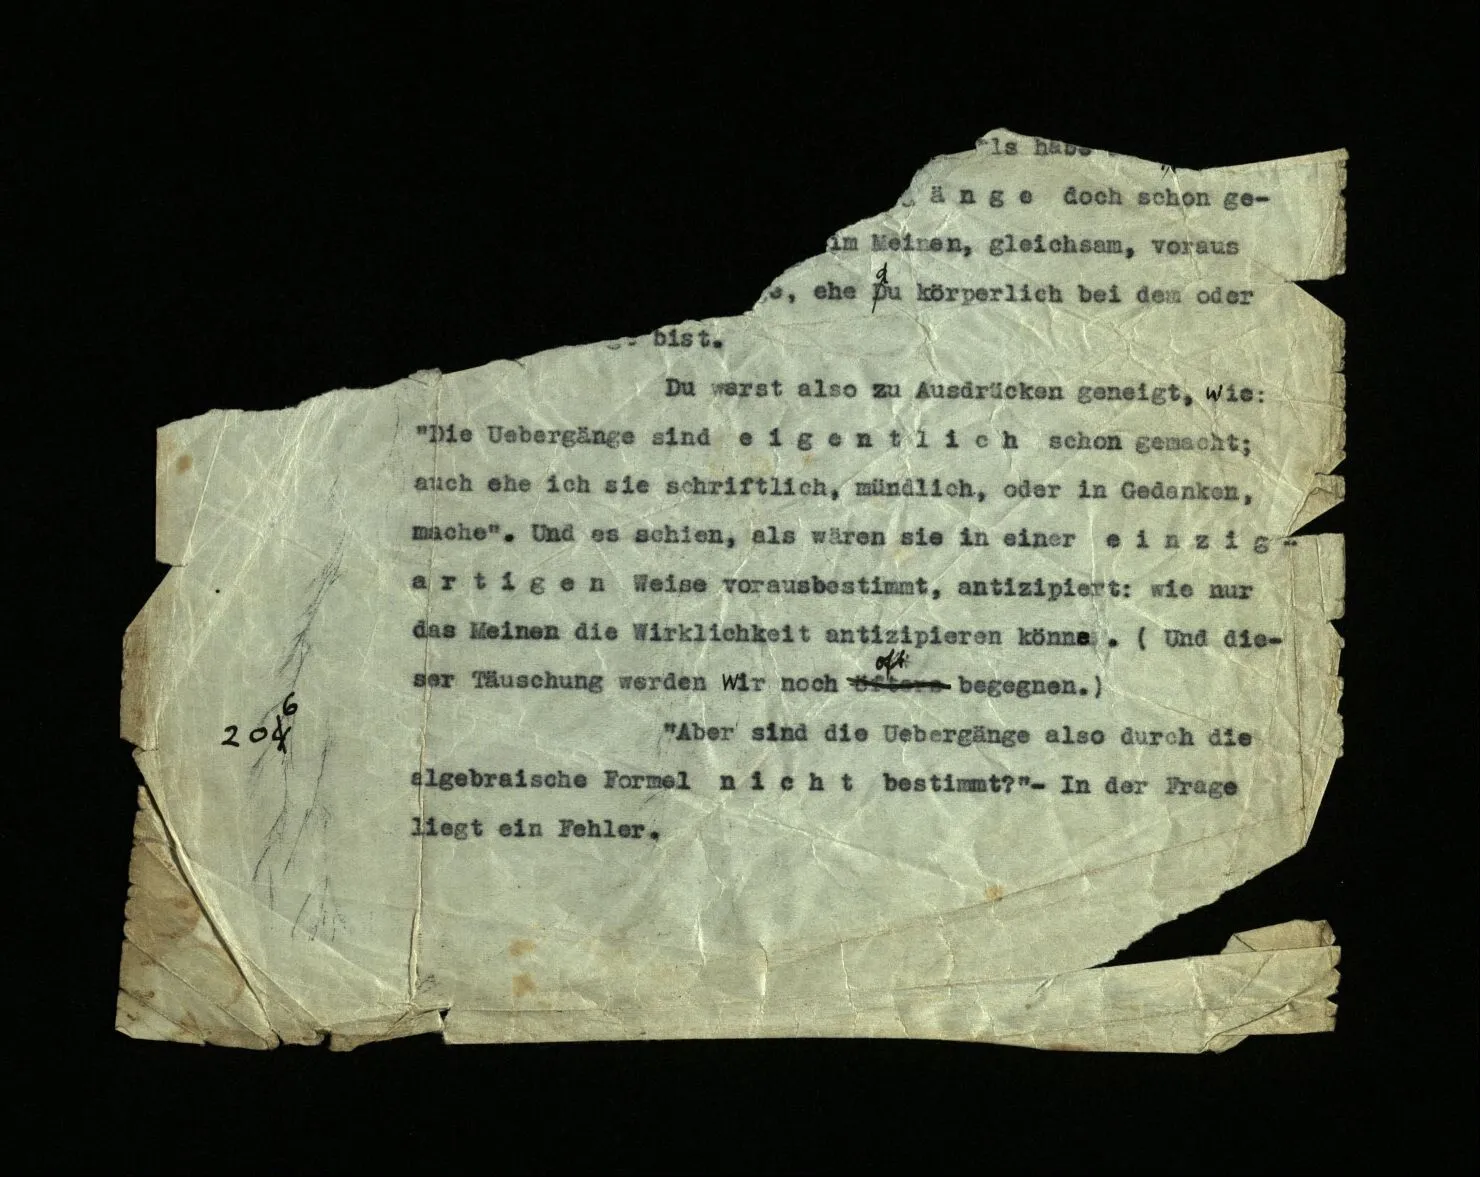 als habe
änge doch schon ge-
im Meinen, gleichsam, voraus
ehe du körperlich bei dem oder
bist.
Du warst also zu Ausdrücken geneigt, wie:
"Die Uebergänge sind eigentlich schon gemacht;
auch ehe ich sie schriftlich, mündlich, oder in Gedanken,
mache". Und es schien, als wären sie in einer einzig-
artigen Weise vorausbestimmt, antizipiert: wie nur
das Meinen die Wirklichkeit antizipieren könne. ( Und die-
oft
ser Täuschung werden wir noch öfters begegnen.)
206
"Aber sind die Uebergänge also durch die
algebraische Formel nicht bestimmt?"- In der Frage
liegt ein Fehler.